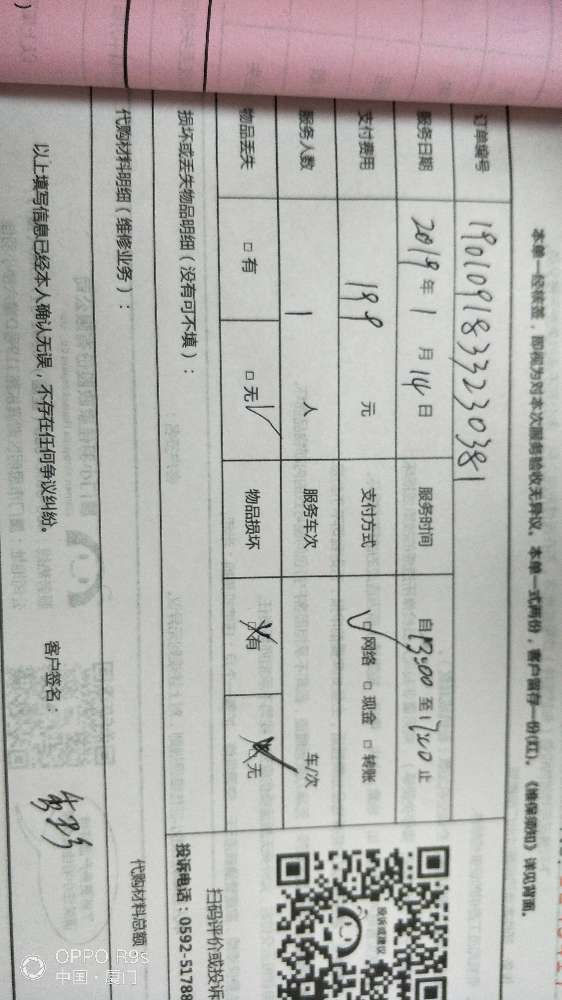 本单一经核签，即视为对本次服务验收无异议。本单一式两份，客户留存一份(红)。《维保须知》详见背面。
订单编号 190109183323038 1
服务日期 2019年1月14日 服务时间 自13:00至17:20止
支付费用 199 元 支付方式 □网络 □现金 □转账
服务人数 1 人 服务车次 车/次
物品丢失 □有 □无 物品损坏 □有 □无
损坏或丢失物品明细（没有可不填）：
代购材料明细（维修业务）： 代购材料总额
以上填写信息已经本人确认无误，不存在任何争议纠纷。 客户签名：
投诉或建议
扫码评价或投诉
投诉电话：0592-51788
OPPO R9s
中国·厦门